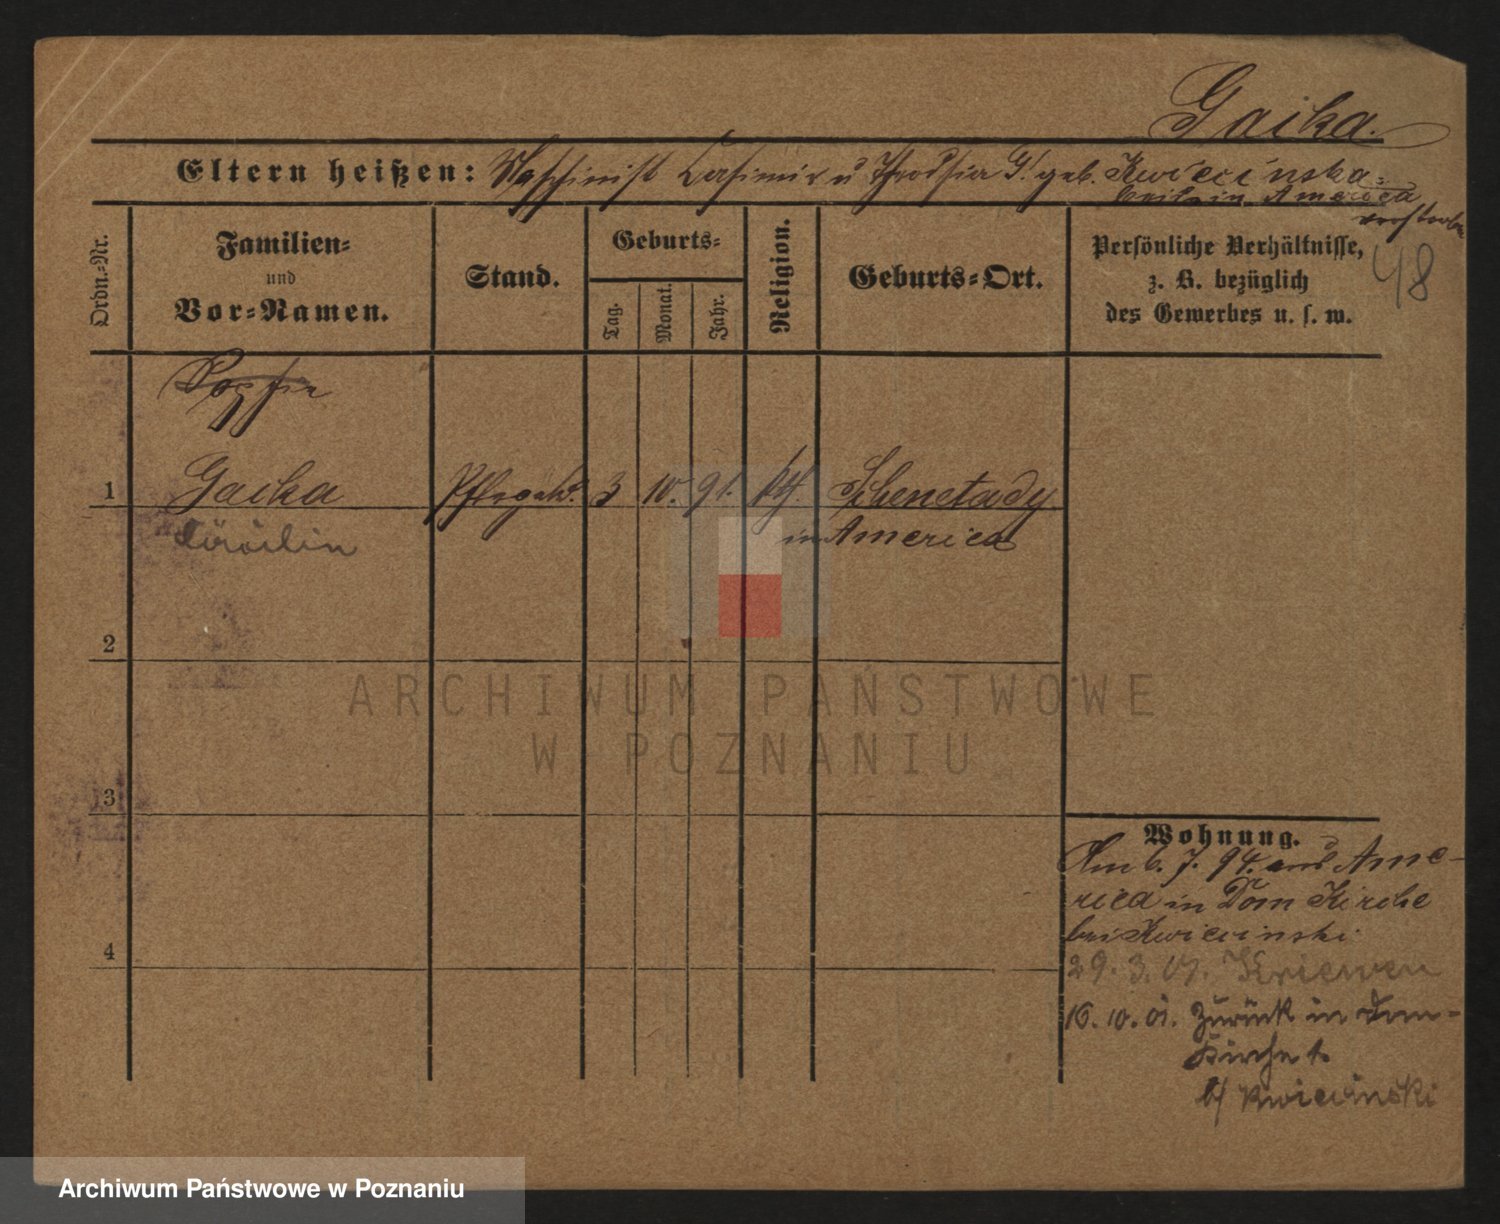 Gaika.
Eltern heißen: Maschinist Casimir u Theodsia G. geb. Kwiecinska
beide in America
verstorben
48
Ordn.-Nr.
Familien-
und
Vor-Namen.
Stand.
Geburts-
Tag.
Monat.
Jahr.
Religion.
Geburts-Ort.
Persönliche Verhältnisse,
z. B. bezüglich
des Gewerbes u. s. w.
Sophie
1 Gaika Pflegek. 3 10. 91. kth. Schenetady
in America
2
3
4
Wohnung.
Am 6. 7. 94. aus Ame-
rica in Dom Kirche
bei Kwiecinski
29. 3. 01. Kriewen
16. 10. 01. Zurück in Dom-
Kirche 1.
b/ Kwiecinski
ARCHIWUM PAŃSTWOWE
W POZNANIU
Archiwum Państwowe w Poznaniu